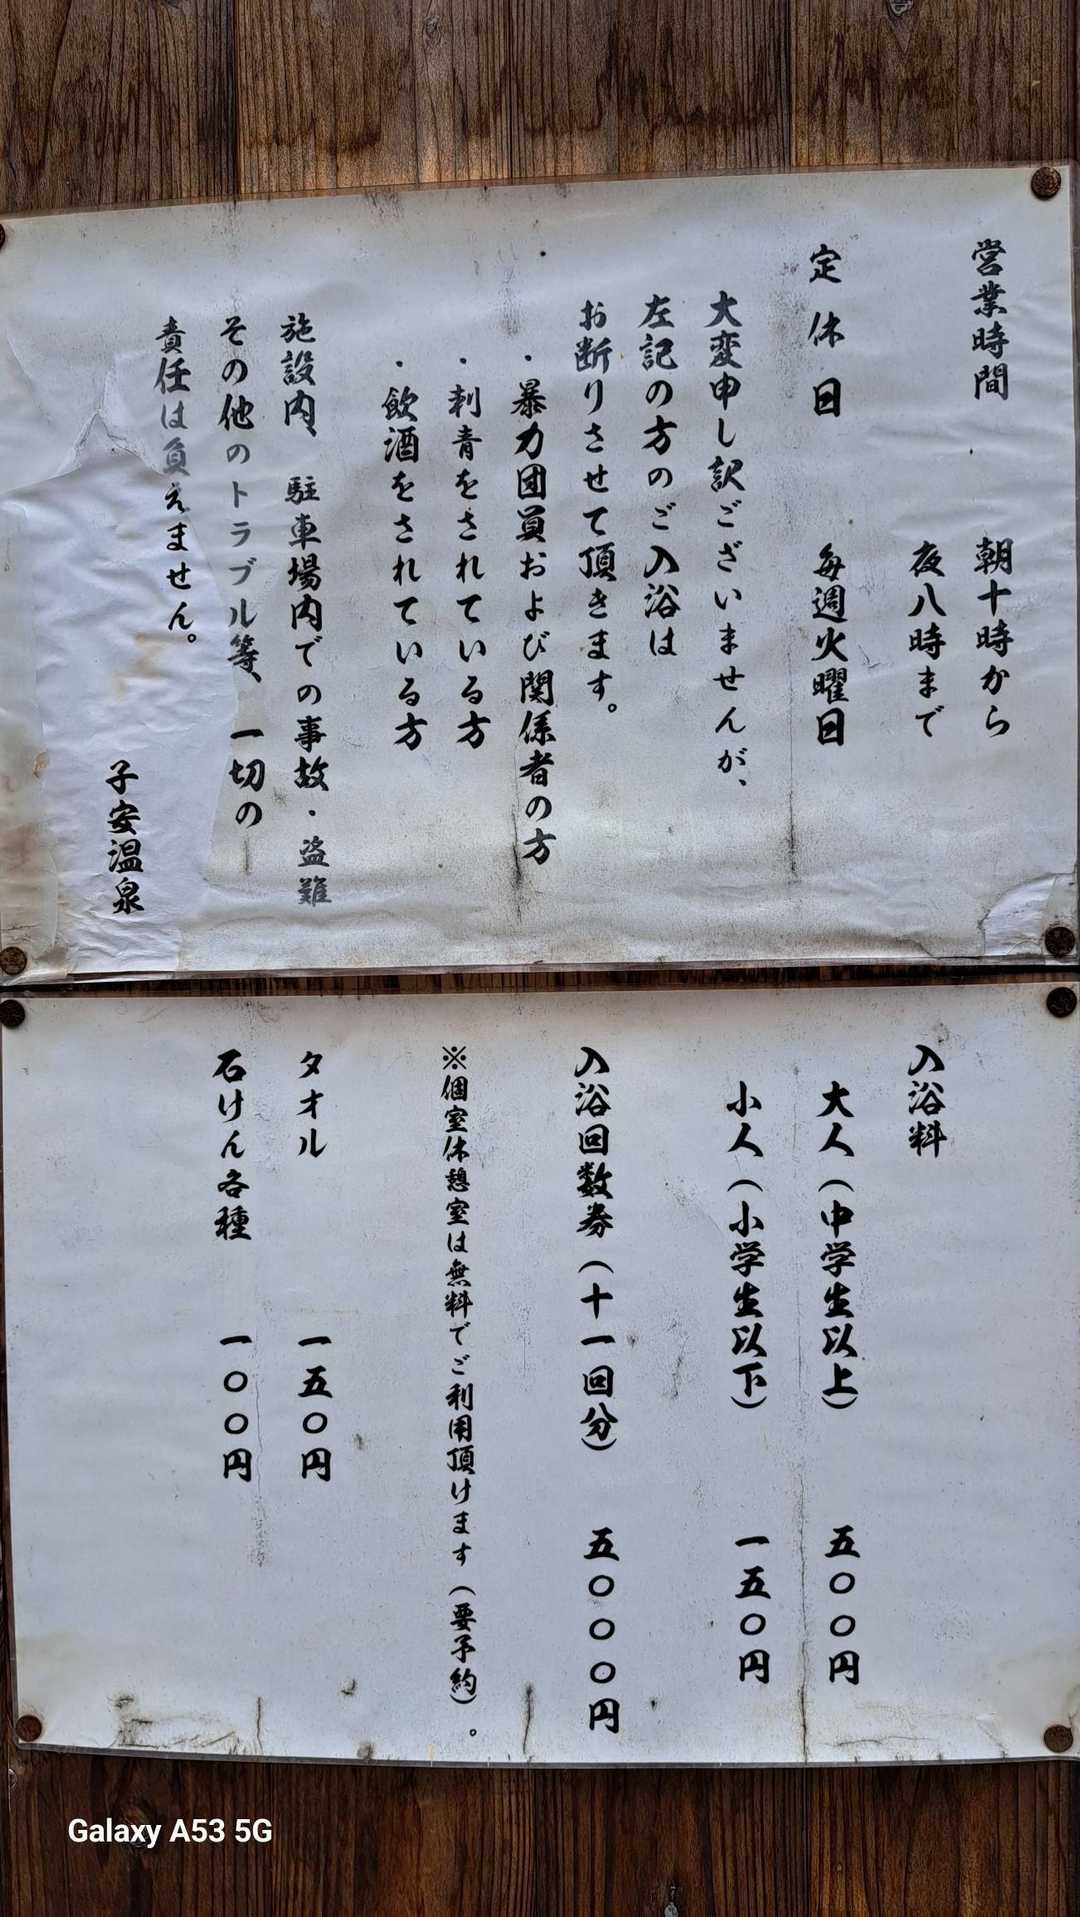 営業時間　朝十時から
夜八時まで
定休日　毎週火曜日
大変申し訳ございませんが、
左記の方のご入浴は
お断りさせて頂きます。
・暴力団員および関係者の方
・刺青をされている方
・飲酒をされている方
施設内、駐車場内での事故・盗難
その他のトラブル等、一切の
責任は負えません。
子安温泉
入浴料
大人（中学生以上）　五〇〇円
小人（小学生以下）　一五〇円
入浴回数券（十一回分）　五〇〇〇円
※個室休憩室は無料でご利用頂けます（要予約）。
タオル　一五〇円
石けん各種　一〇〇円
Galaxy A53 5G